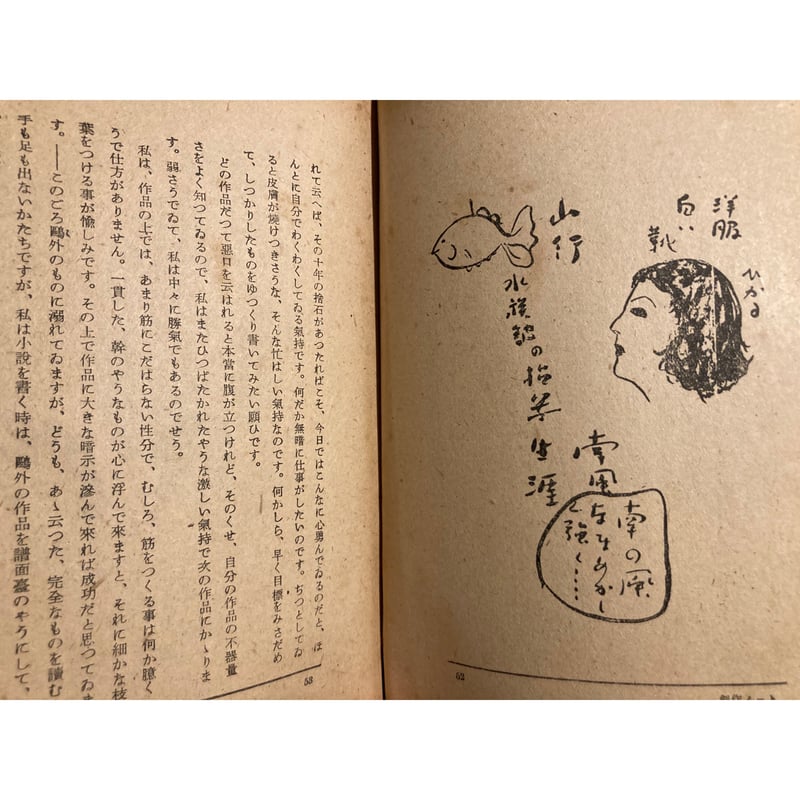 ひかる
洋服
白い
靴
山行
水族館の
生涯
南風
南の風
強く……
52
創作ノート
れて云へば、その十年の捨石があつたればこそ、今日ではこんなに心勇んでゐるのだと、ほ
んとに自分でわくわくしてゐる氣持です。何だか無暗に仕事がしたいのです。ぢつとしてゐ
ると皮膚が燒けつきさうな、そんな忙はしい氣持なのです。何かしら、早く目標をみさだめ
て、しつかりしたものをゆつくり書いてみたい願ひです。
どの作品だつて惡口を云はれると本當に腹が立つけれど、そのくせ、自分の作品の不器量
さをよく知つてゐるので、私はまたひつぱたかれたやうな激しい氣持で次の作品にかゝりま
す。弱さうでゐて、私は中々に勝氣でもあるのでせう。
私は、作品の上では、あまり筋にこだはらない性分で、むしろ、筋をつくる事は何か臆く
うで仕方がありません。一貫した、幹のやうなものが心に浮んで來ますと、それに細かな枝
葉をつける事が愉しみです。その上で作品に大きな暗示が滲んで來れば成功だと思つてゐま
す。――このごろ鷗外のものに溺れてゐますが、どうも、あゝ云つた、完全なものを讀む
手も足も出ないかたちですが、私は小說を書く時は、鷗外の作品を譜面臺のやうにして、
53